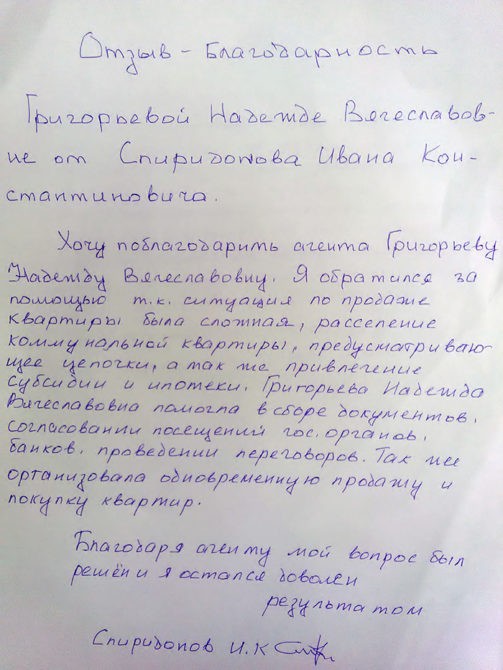 Отзыв - Благодарность
Григорьевой Надежде Вячеславов-
не от Спиридонова Ивана Кон-
стантиновича.
Хочу поблагодарить агента Григорьеву
Надежду Вячеславовну. Я обратился за
помощью т.к. ситуация по продаже
квартиры была сложная, расселение
коммунальной квартиры, предусматриваю-
щее цепочки, а так же привлечение
субсидии и ипотеки. Григорьева Надежда
Вячеславовна помогла в сборе документов,
согласовании посещений гос. органов,
банков, проведении переговоров. Так же
организовала одновременную продажу и
покупку квартир.
Благодаря агенту мой вопрос был
решён и я остался доволен
результатом
Спиридонов И.К